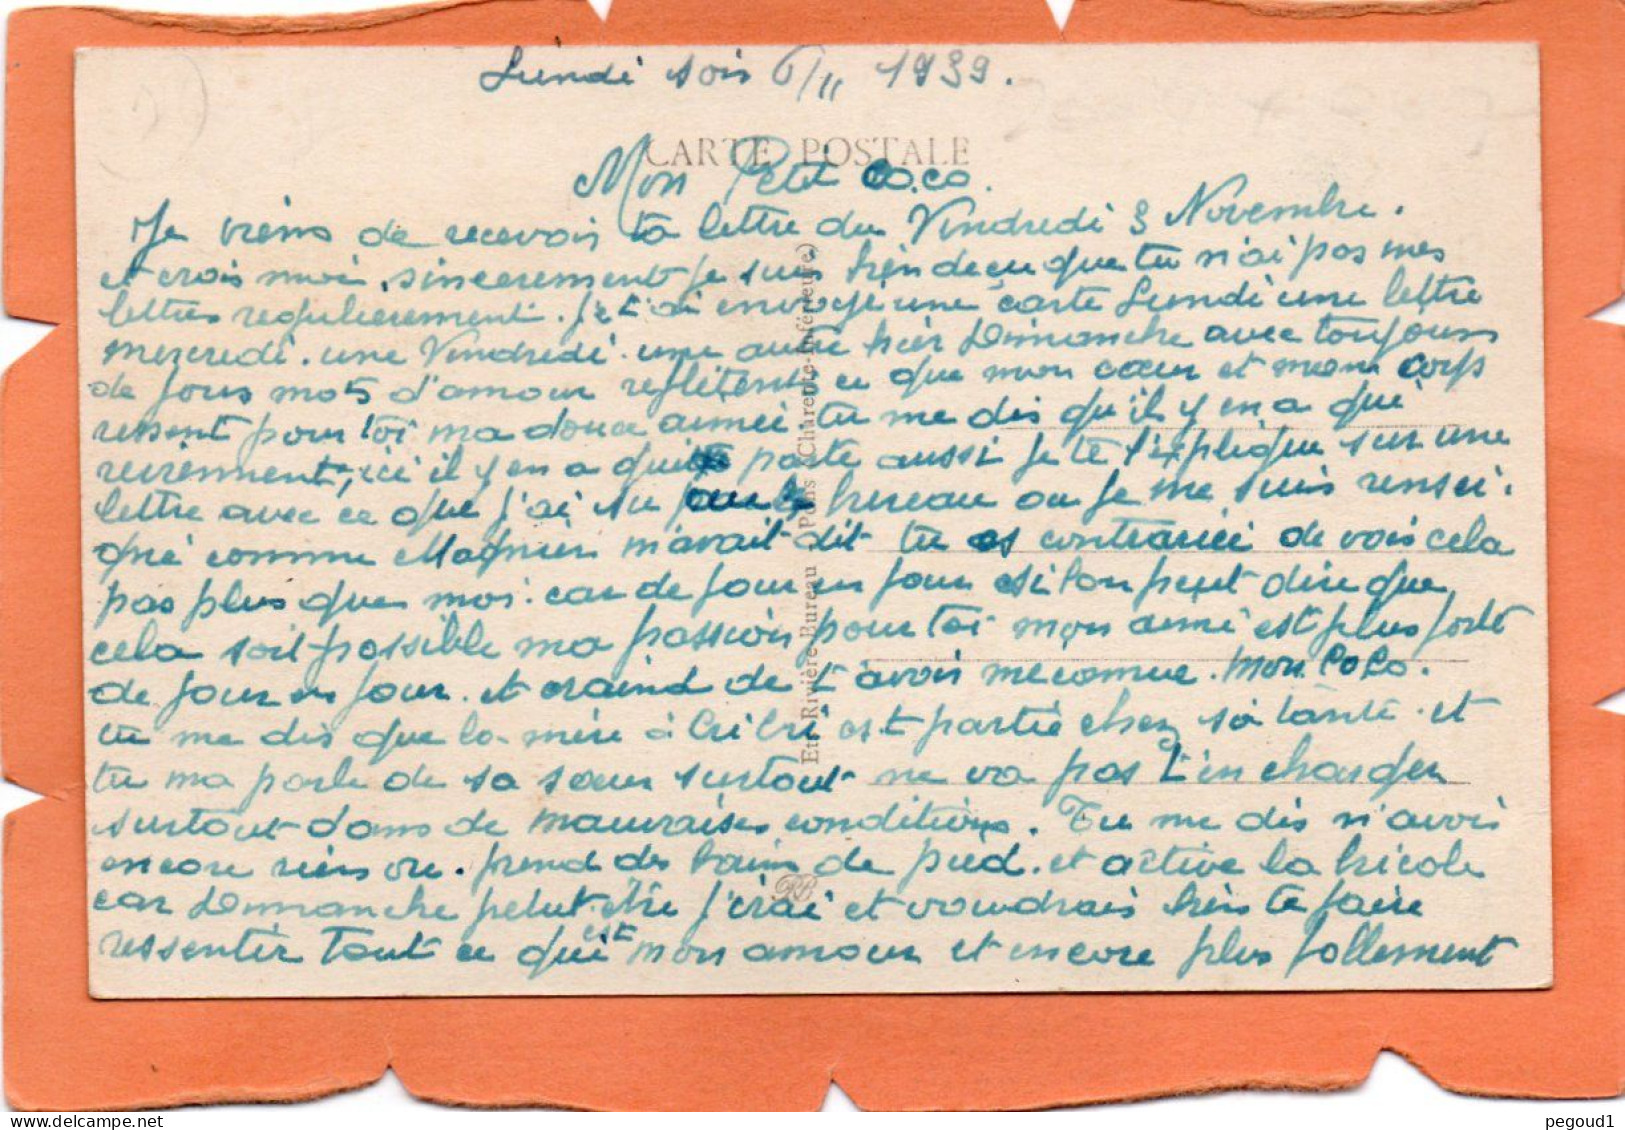 Lundi soir 6/11 1939.
CARTE POSTALE
Mon Petit Co.co.
Je viens de recevoir ta lettre du Vindredi 3 Novembre.
et crois moi, sincerement je suis bien decu que tu n'ai pas mes
lettres regulierement. Je t'ai envoyé une carte Lundi une lettre
mercredi. une Vindredi. une autre hier Dimanche avec toujours
de jous mots d'amour reflétent ce que mon cœur et mon corps
ressent pour toi ma douce aimée. tu me dis qu'il y en a qui
reviennent, ici il y en a qui parte aussi je te l'explique sur une
lettre avec ce que j'ai su au bureau ou je me suis rensei.
gné comme Magnien m'avait dit tu es contrariéé de voir cela
pas plus que moi. car de jour en jour si l'on peut dire que
cela soit possible ma passion pour toi mon aimé est plus forte
de jour en jour. et craind de t'avoir meconnue. Mon CoCo.
tu me dis que la mère à CriCri est partie chez sa tante. et
tu ma parle de sa sœur surtout ne va pas t'en charger
surtout dans de mauvaises conditions. Tu me dis n'avoir
encore rien vu. prend des bains de pied. et active la bricole
car Dimanche peut être j'irai et voudrais bien te faire
ressentir tout ce qui est mon amour et encore plus follement
Etr Rivière-Bureau Pons (Charente-Inférieure)
RB
pegoud1